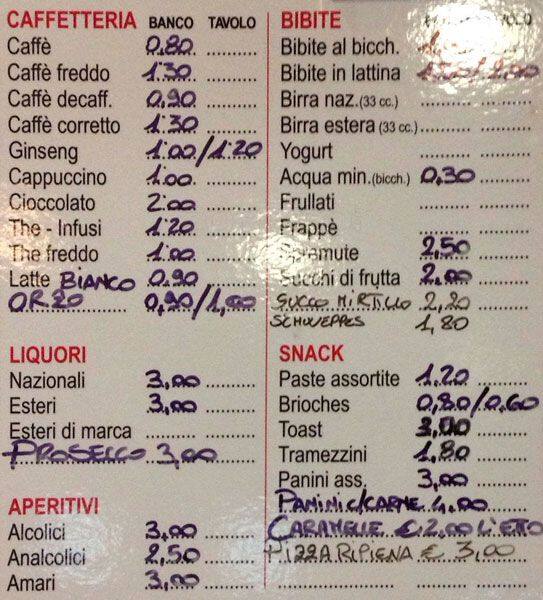 CAFFETTERIA BANCO TAVOLO
Caffè 0,80
Caffè freddo 1.30
Caffè decaff. 0,90
Caffè corretto 1.30
Ginseng 1.00/1.20
Cappuccino 1.00
Cioccolato 2.00
The - Infusi 1.20
The freddo 1.00
Latte BIANCO 0.90
ORZO 0,90/1,00
LIQUORI
Nazionali 3,00
Esteri 3,00
Esteri di marca
PROSECCO 3,00
APERITIVI
Alcolici 3,00
Analcolici 2,50
Amari 3,00
BIBITE
Bibite al bicch.
Bibite in lattina
Birra naz. (33 cc.)
Birra estera (33 cc.)
Yogurt
Acqua min. (bicch.) 0,30
Frullati
Frappè
Spremute 2,50
Succhi di frutta 2,00
SUCCO MIRTILLO 2,20
SCHWEPPES 1,80
SNACK
Paste assortite 1.20
Brioches 0,80/0.60
Toast
Tramezzini 1,80
Panini ass. 3,00
PANINI C/CARNE 4,00
CARAMELLE € 2,00 L'ETTO
PIZZA RIPIENA € 3,00